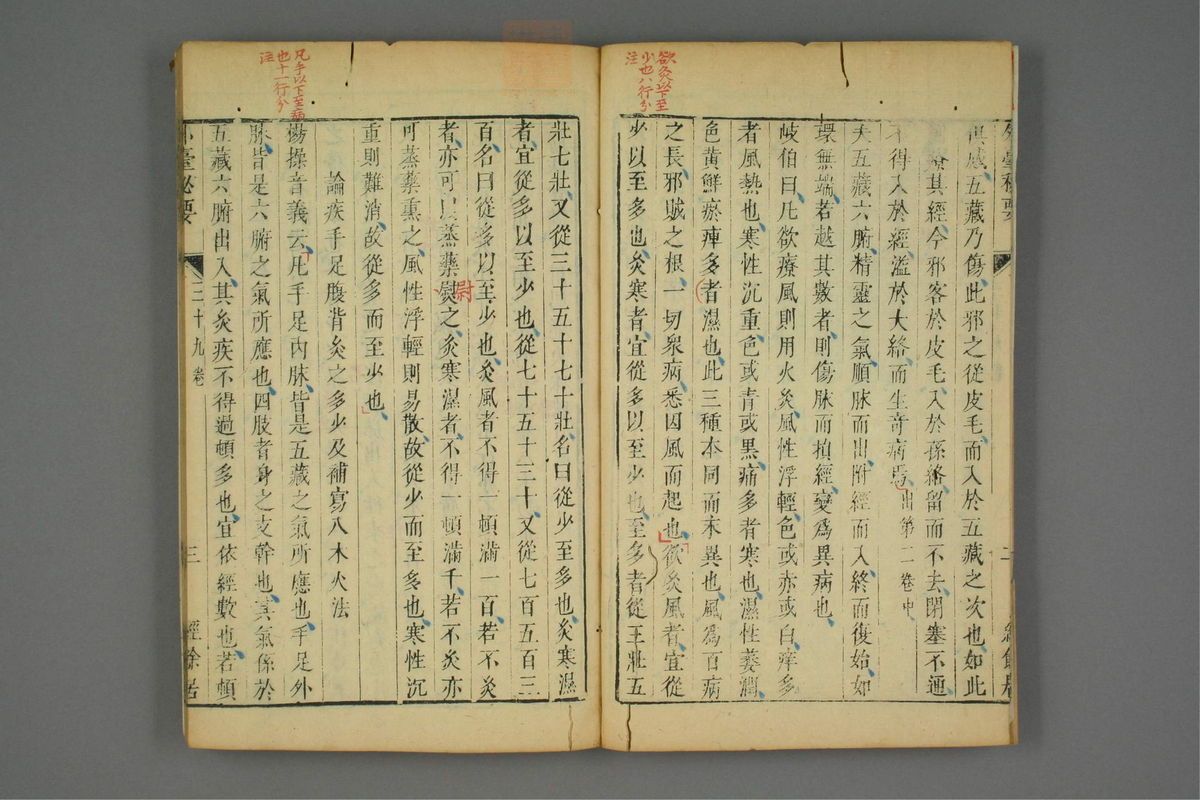 欲灸以下至
少也八行分
注
外臺秘要
二
俱感五藏乃傷此邪之從皮毛而入於五藏之次也如此
其經今邪客於皮毛入於孫絡留而不去閉塞不通
不得入於經溢於大絡而生奇病焉出第二卷中
夫五藏六腑精靈之氣順脉而出附經而入終而復始如
環無端若越其數者則傷脉而損經變爲異病也
岐伯曰凡欲療風則用火灸風性浮輕色或赤或白痒多
者風熱也寒性沉重色或青或黒痛多者寒也濕性萎潤
色黄鮮瘀痺多者濕也此三種本同而末異也風爲百病
之長邪賊之根一切衆病悉因風而起也欲灸風者宜從
少以至多也灸寒者宜從多以至少也至多者從三壯五
凡手以下至病
也十一行分
注
壯七壯又從三十五十七十壯名曰從少至多也灸寒濕
者宜從多以至少也從七十五十三十又從七百五百三
百名曰從多以至少也灸風者不得一頓滿一百若不灸
者亦可以蒸藥熨之灸寒濕者不得一頓滿千若不灸亦
尉
可蒸藥熏之風性浮輕則易散故從少而至多也寒性沉
重則難消故從多而至少也
論疾手足腹背灸之多少及補寫八木火法
楊操音義云凡手足内脉皆是五藏之氣所應也手足外
脉皆是六腑之氣所應也四肢者身之支幹也其氣係於
五藏六腑出入其灸疾不得過頓多也宜依經數也若頓
外臺秘要
三十九卷
三
經餘居